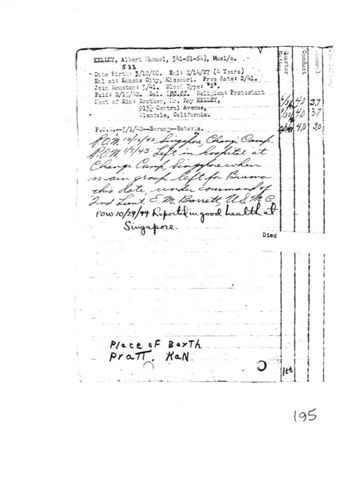 KELLEY, Albert Manuel, 341-61-64), Mus1/c.
5.23
Date Birth: 3/12/02. Enl: 2/14/27 (4 Years)
Enl at: Kansas City, Missouri. Pres Rate: 2/41.
Join Houston: 3/41. Blood Type: "B".
Paid: 2/13/42. Bal. Religion: Protestant
Next of Kin: Brother, Mr. Roy KELLEY,
Central Avenue,
Glendale, California.
P.O.W.--3/1/42--Serang--Batavia.
P.O.W. 10/ /42 Singapore Changi Camp.
P.O.W. 1/ /43. Left in hospital at
Changi Camp, Singapore when
main group left for Burma
this date, under command of
2nd Lieut E. M. Barrett, U.S.M.C.
POW 10/29/44 Reported in good health at
Singapore.
Died
Place of Barth
Pratt, KAN
Quarter
Conduct
4.0 3.7
4.0 3.7
4.0 3.0
195